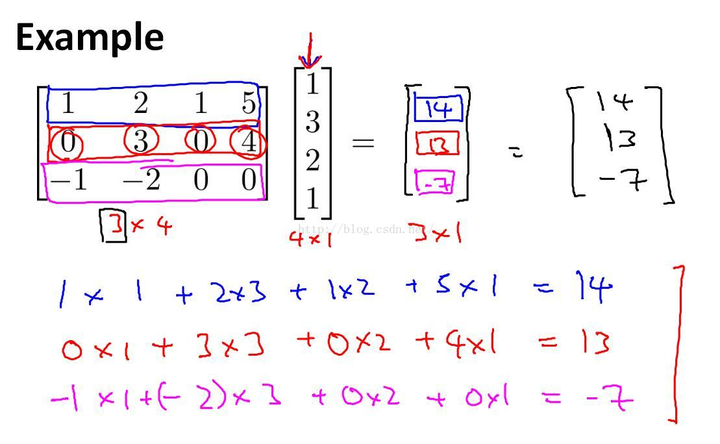 Example
1 2 1 5
0 3 0 4
-1 -2 0 0
1
3
2
1
=
14
13
-7
=
14
13
-7
3 × 4
4×1
3×1
http://blog.csdn.net
1 × 1 + 2×3 + 1×2 + 5×1 = 14
0×1 + 3×3 + 0×2 + 4×1 = 13
-1×1+(-2)×3 + 0×2 + 0×1 = -7